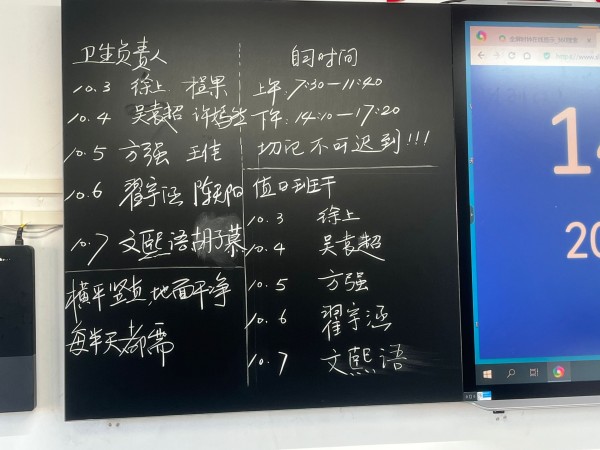 卫生负责人
10.3 徐上 程果
10.4 吴袁超
10.5 方强 王佳
10.6 翟宇涵 陈天阳
10.7 文熙语 胡子慕
横平竖直,地面干净
每半天都需
自习时间
上午:7:30—11:40
下午:14:10—17:20
切记不可迟到!!!
值日班干
10.3 徐上
10.4 吴袁超
10.5 方强
10.6 翟宇涵
10.7 文熙语
14
20